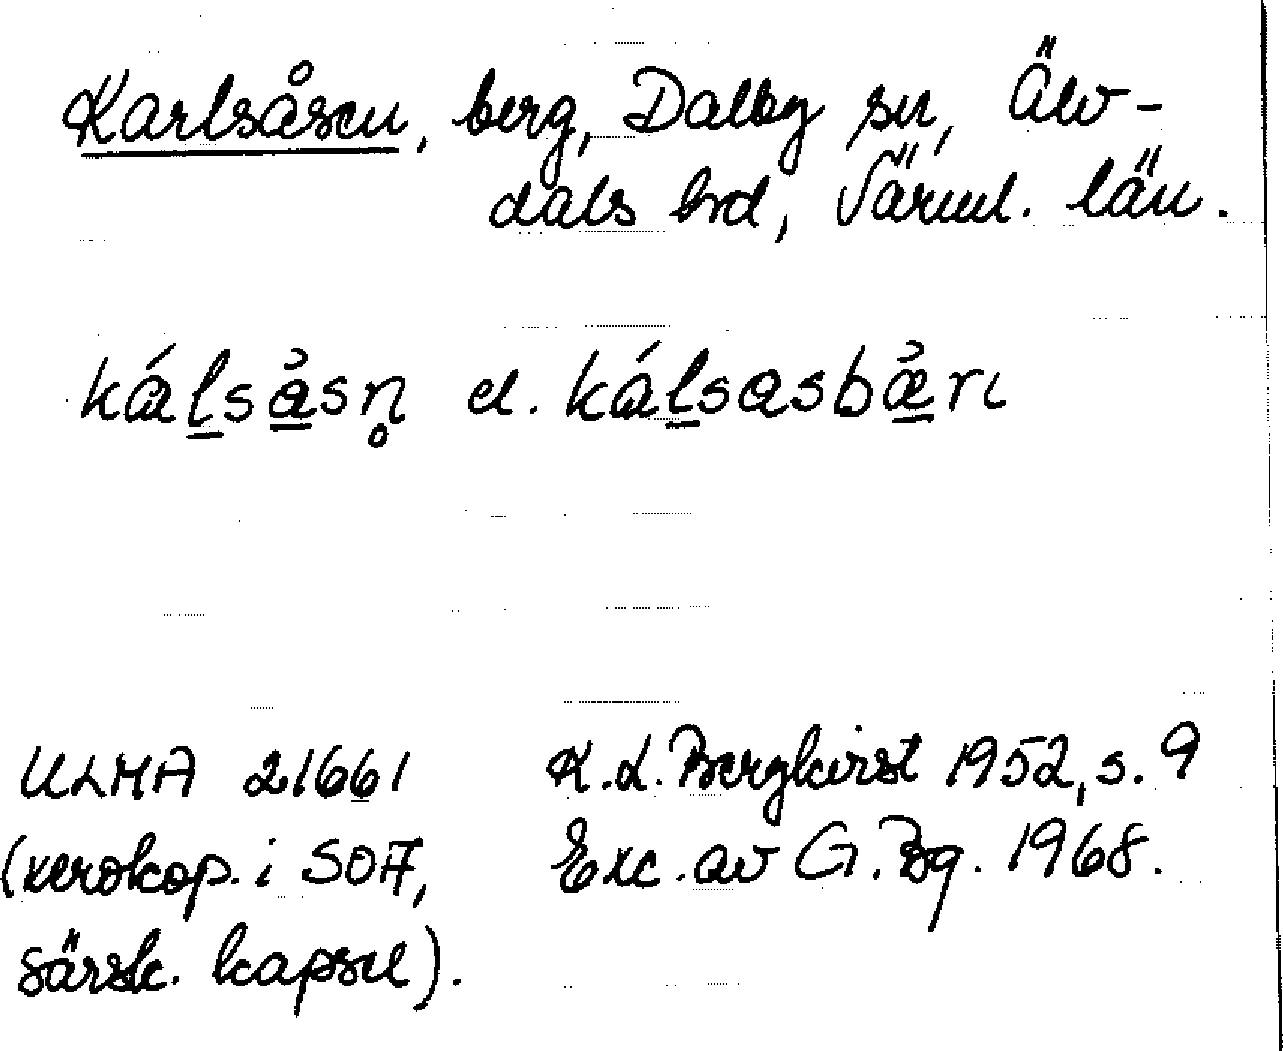 Karlsåsen, berg, Dalby sn, Älv-
dals hrd, Värml. län.
kálsåsn̥ el. kálsasbæ̀rı
ULMA 21661
(xerokop. i SOA,
särsk. kapsel).
K.L. Bergkvist 1952, s. 9
Exc. av G. Bg. 1968.